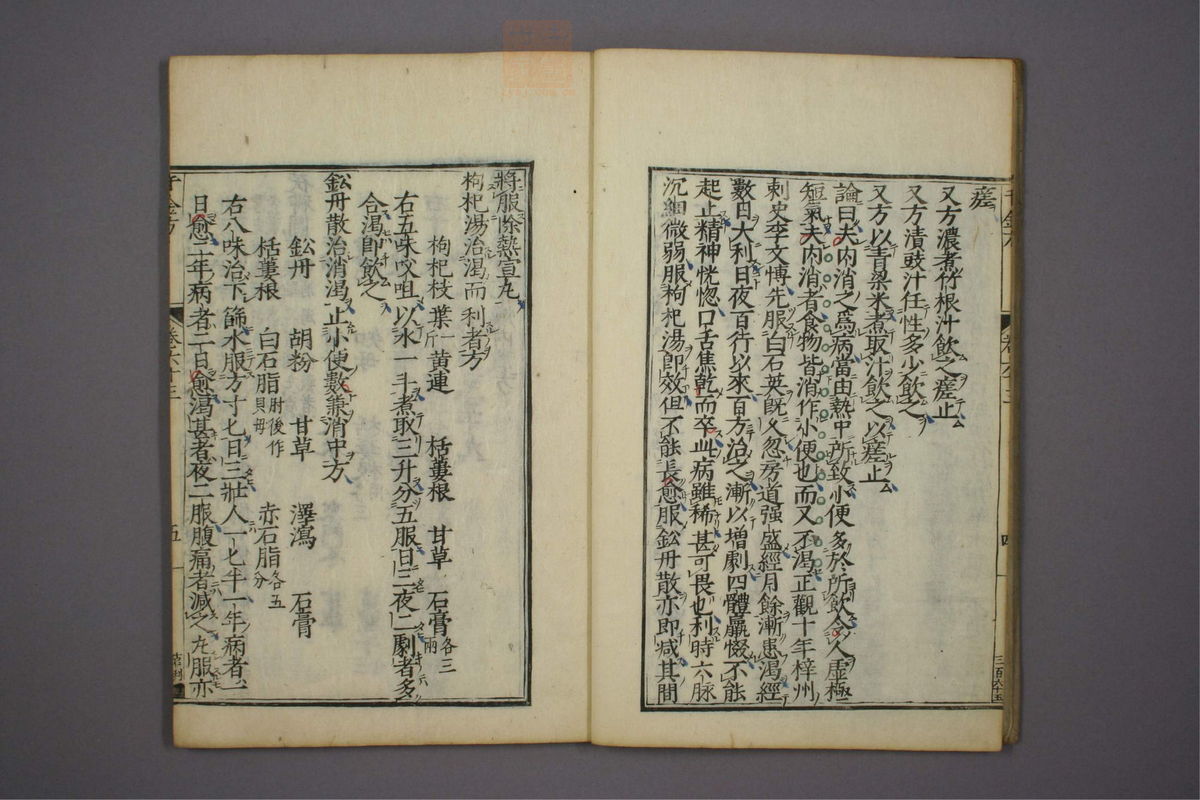 千金方
四
三百六十五
瘥
又方濃煮竹根汁飲之瘥止
又方漬豉汁任性多少飲之
又方以青粱米煮取汁飲之以瘥止
論曰夫内消之爲病當由熱中所致小便多於所飲令人虚極
短氣夫内消者食物皆消作小便也而又不渴正觀十年梓州
刺史李文博先服白石英既久忽房道强盛經月餘漸患渴經
數日大利日夜百行以來百方治之漸以増劇四體羸惙不能
起止精神恍惚口舌焦乾而卒此病雖稀甚可畏也利時六脉
沉細微弱服枸杞湯即效但不能長愈服鈆丹散亦即减其間
將服除熱宣丸
枸杞湯治渴而利者方
枸杞枝葉一斤 黄連 栝蔞根 甘草 石膏各三兩
右五味㕮咀以水一斗煮取三升分五服日三夜二劇者多
合渴即飲之
鈆丹散治消渴止小便數兼消中方
鈆丹 胡粉 甘草 澤瀉 石膏
栝蔞根 白石脂肘後作貝母 赤石脂各五分
右八味治下篩水服方寸匕日三壯人一匕半一年病者一
日愈二年病者二日愈渴甚者夜二服腹痛者减之丸服亦
千金方
五